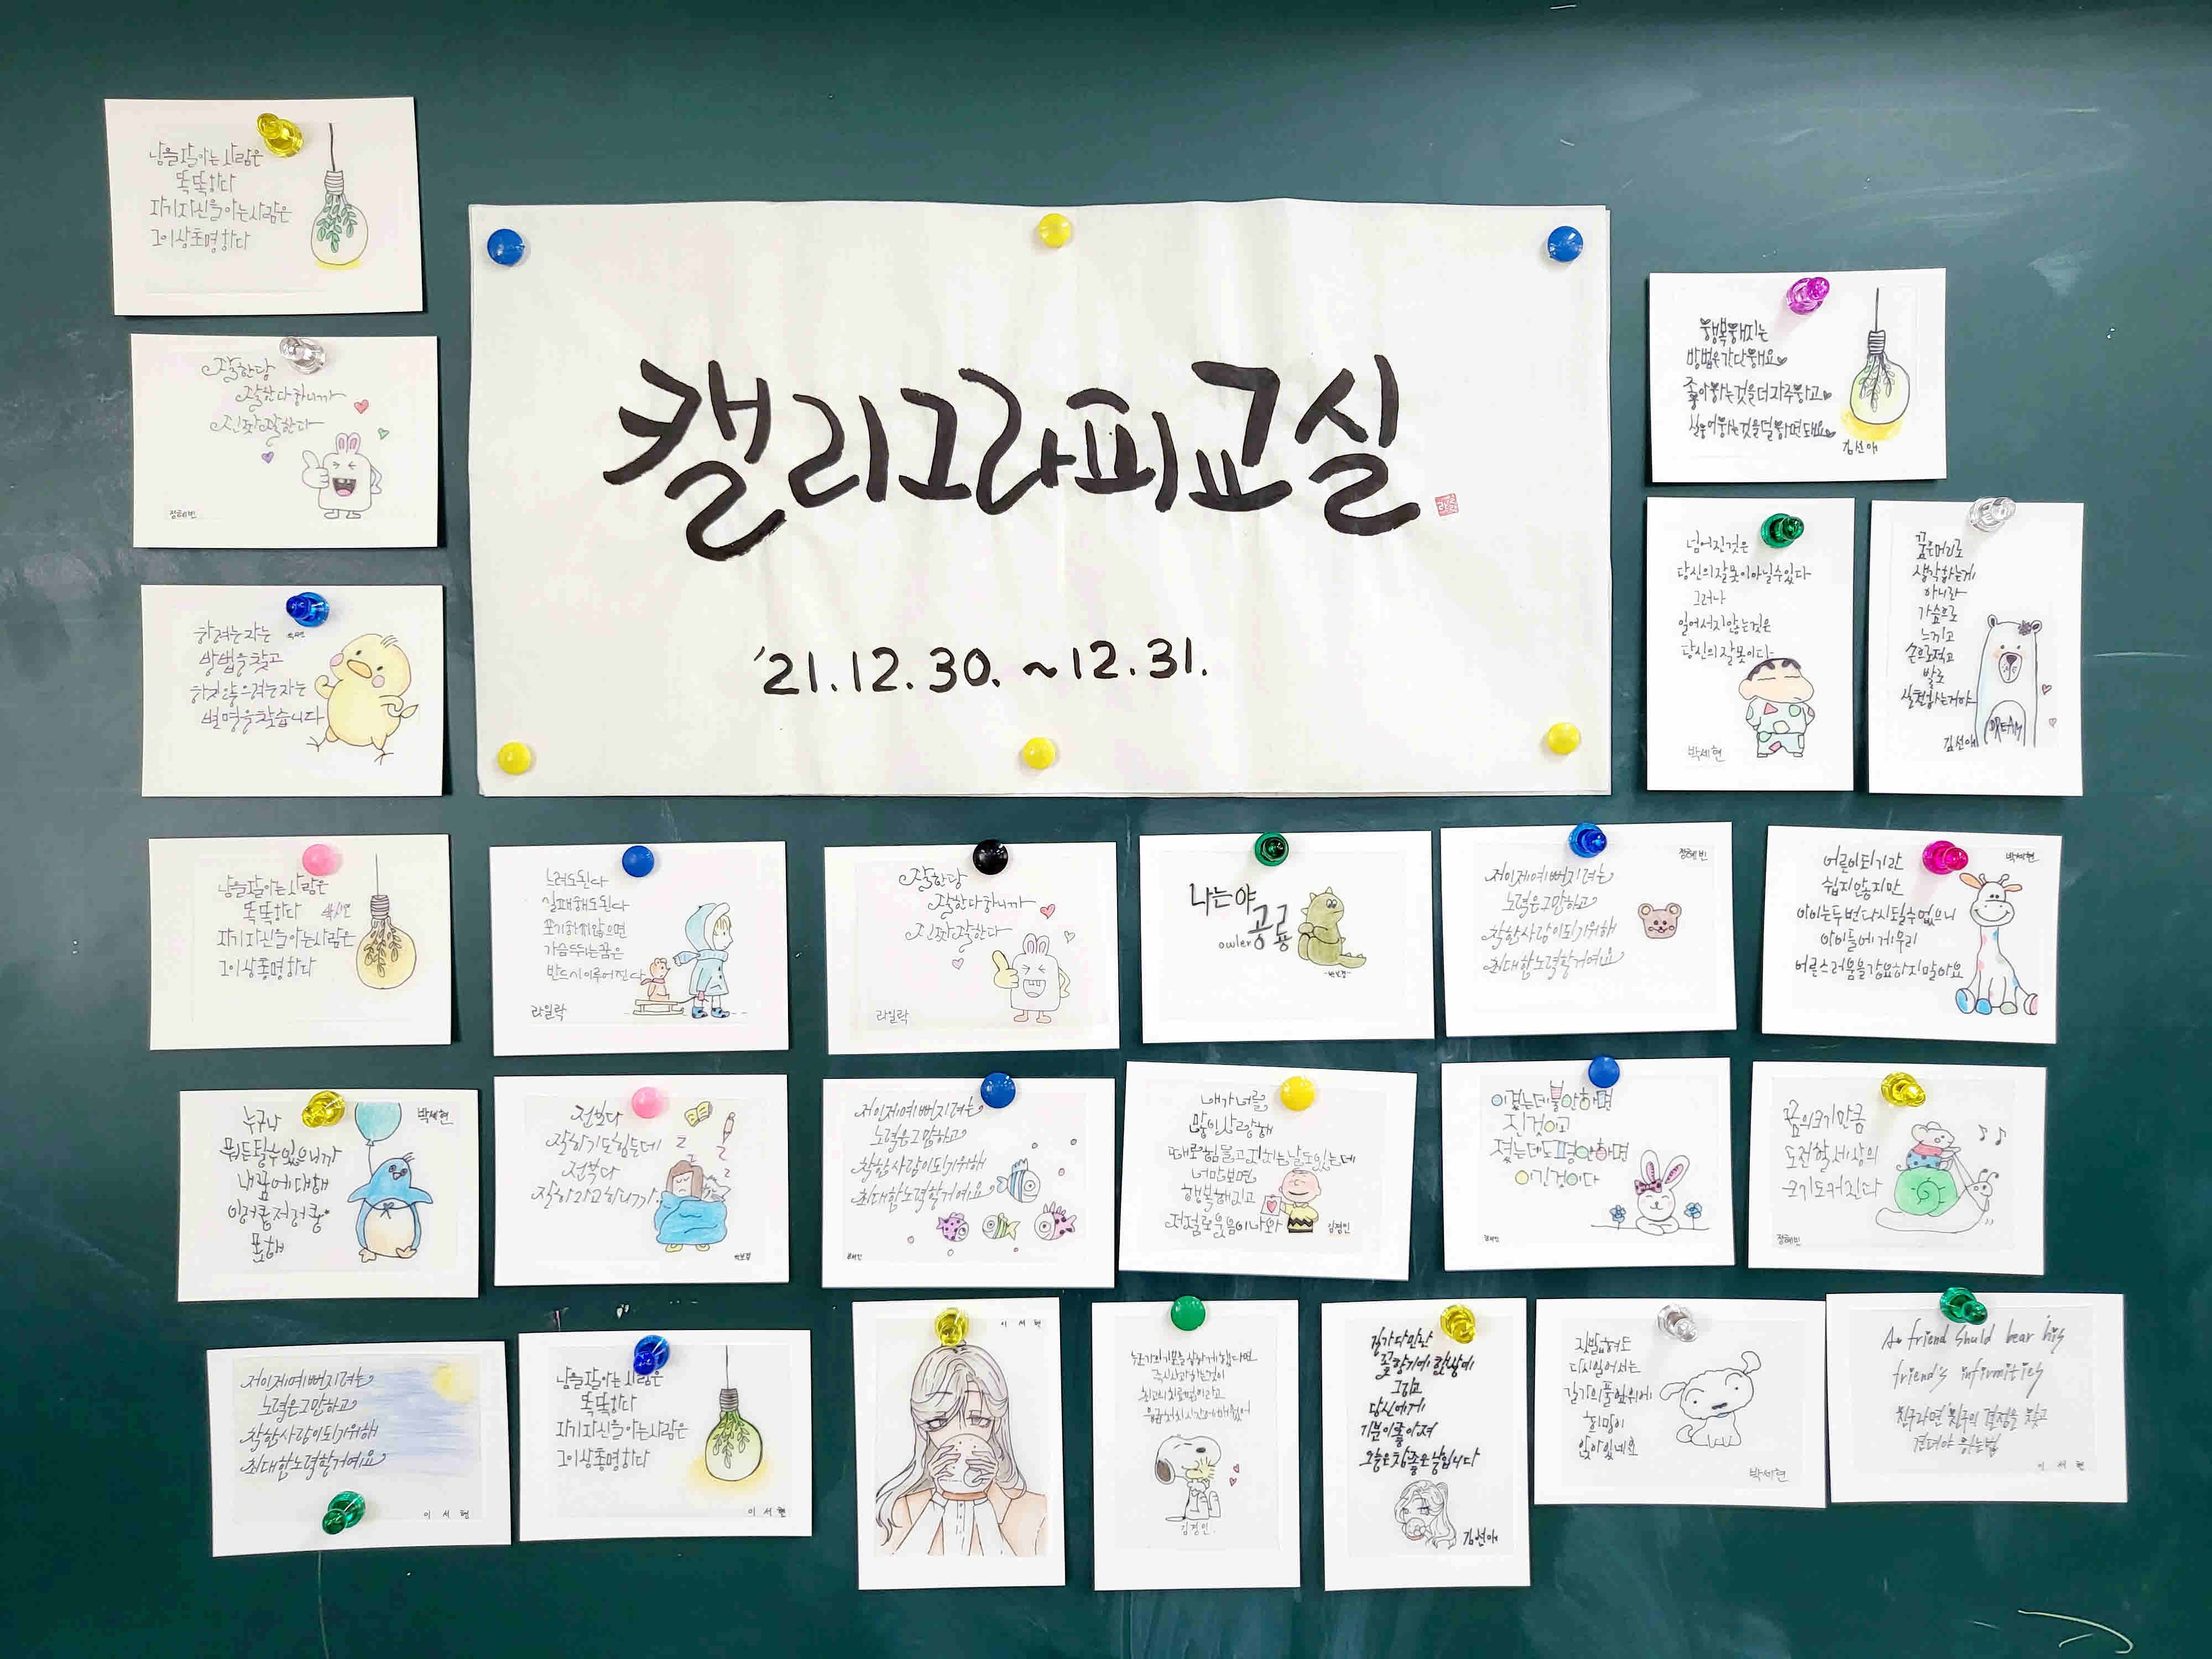 캘리그라피교실
'21.12.30.~12.31.
남을잘아는사람은
똑똑하다
자기자신을아는사람은
그이상총명하다
잘한당
잘한다하니까
진짜잘한다
정혜빈
하려는자는
방법을찾고
하지않으려는자는
변명을찾습니다
행복해지는
방법은간단해요
좋아하는것을더자주하고
싫어하는것을덜하면돼요
김선애
넘어진것은
당신의잘못이아닐수있다
그러나
일어서지않는것은
당신의잘못이다
박세현
꿈은머리로
생각하는게
아니라
가슴으로
느끼고
손으로적고
발로
실천하는거야
DREAM
김선애
남을잘아는사람은
똑똑하다
자기자신을아는사람은
그이상총명하다
느려도된다
실패해도된다
포기하지않으면
가슴뛰는꿈은
반드시이루어진다
라일락
잘한당
잘한다하니까
진짜잘한다
라일락
나는야
공룡
owler
정혜빈
저이제예뻐지려는
노력은그만하고
착한사람이되기위해
최대한노력할거예요
박세현
어른이되기란
쉽지않지만
아이는두번다시될수없으니
아이들에게우리
어른스러움을강요하지말아요
누구나
박세현
뭐든될수있으니까
내꿈에대해
이러쿵저러쿵
못해
전보다
잘하기도힘든데
전부다
잘하라고하니까
Z
Z
Z
Z
저이제예뻐지려는
노력은그만하고
착한사람이되기위해
최대한노력할거예요
내가너를
많이사랑해
때로힘들고지치는날도있는데
너만보면
행복해지고
저절로웃음이나와
김경민
이겼는데불안하면
진것이고
졌는데도평안하면
이긴것이다
꿈의크기만큼
도전할세상의
크기도커진다
정혜빈
저이제예뻐지려는
노력은그만하고
착한사람이되기위해
최대한노력할거예요
이서현
남을잘아는사람은
똑똑하다
자기자신을아는사람은
그이상총명하다
이서현
이서현
누군가의기분을상하게했다면
즉시사과하는것이
최고의치료법이라고
응급처치시간에배웠어
김경민
길가다만난
꽃향기에햇살에
그리고
당신에게
기분이좋아져
오늘은참좋은날입니다
김선애
짓밟혀도
다시일어서는
길가의풀잎위에
희망이
앉아있네요
박세현
A friend should bear his
friend's infirmities
친구라면친구의결점을
견뎌야하는법
이서현